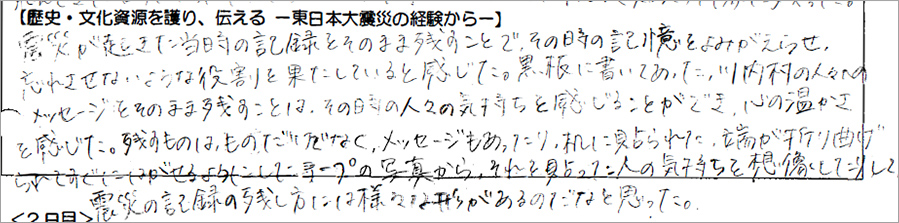 【歴史・文化資源を護り、伝える ー東日本大震災の経験からー】
震災が起きた当時の記録をそのまま残すことで、その時の記憶をよみがえらせ、
忘れさせないような役割を果たしていると感じた。黒板に書いてあった、川内村の人々への
メッセージをそのまま残すことは、その時の人々の気持ちを感じることができ、心の温かさ
を感じた。残すものは、ものだけでなく、メッセージもあったり、机に貼られた、端が折り曲げ
られてすぐにはがせるようにしたテープの写真から、それを貼った人の気持ちを想像したりして
震災の記録の残し方には様々な形があるのだなと思った。
<2日目>